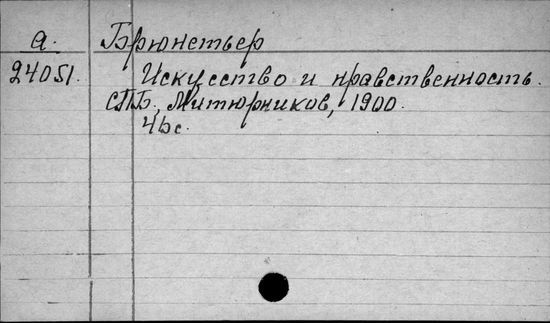 а. Брюнетьер
24051. Искусство и нравственность.
СПБ, Митюрников, 1900.
46с.